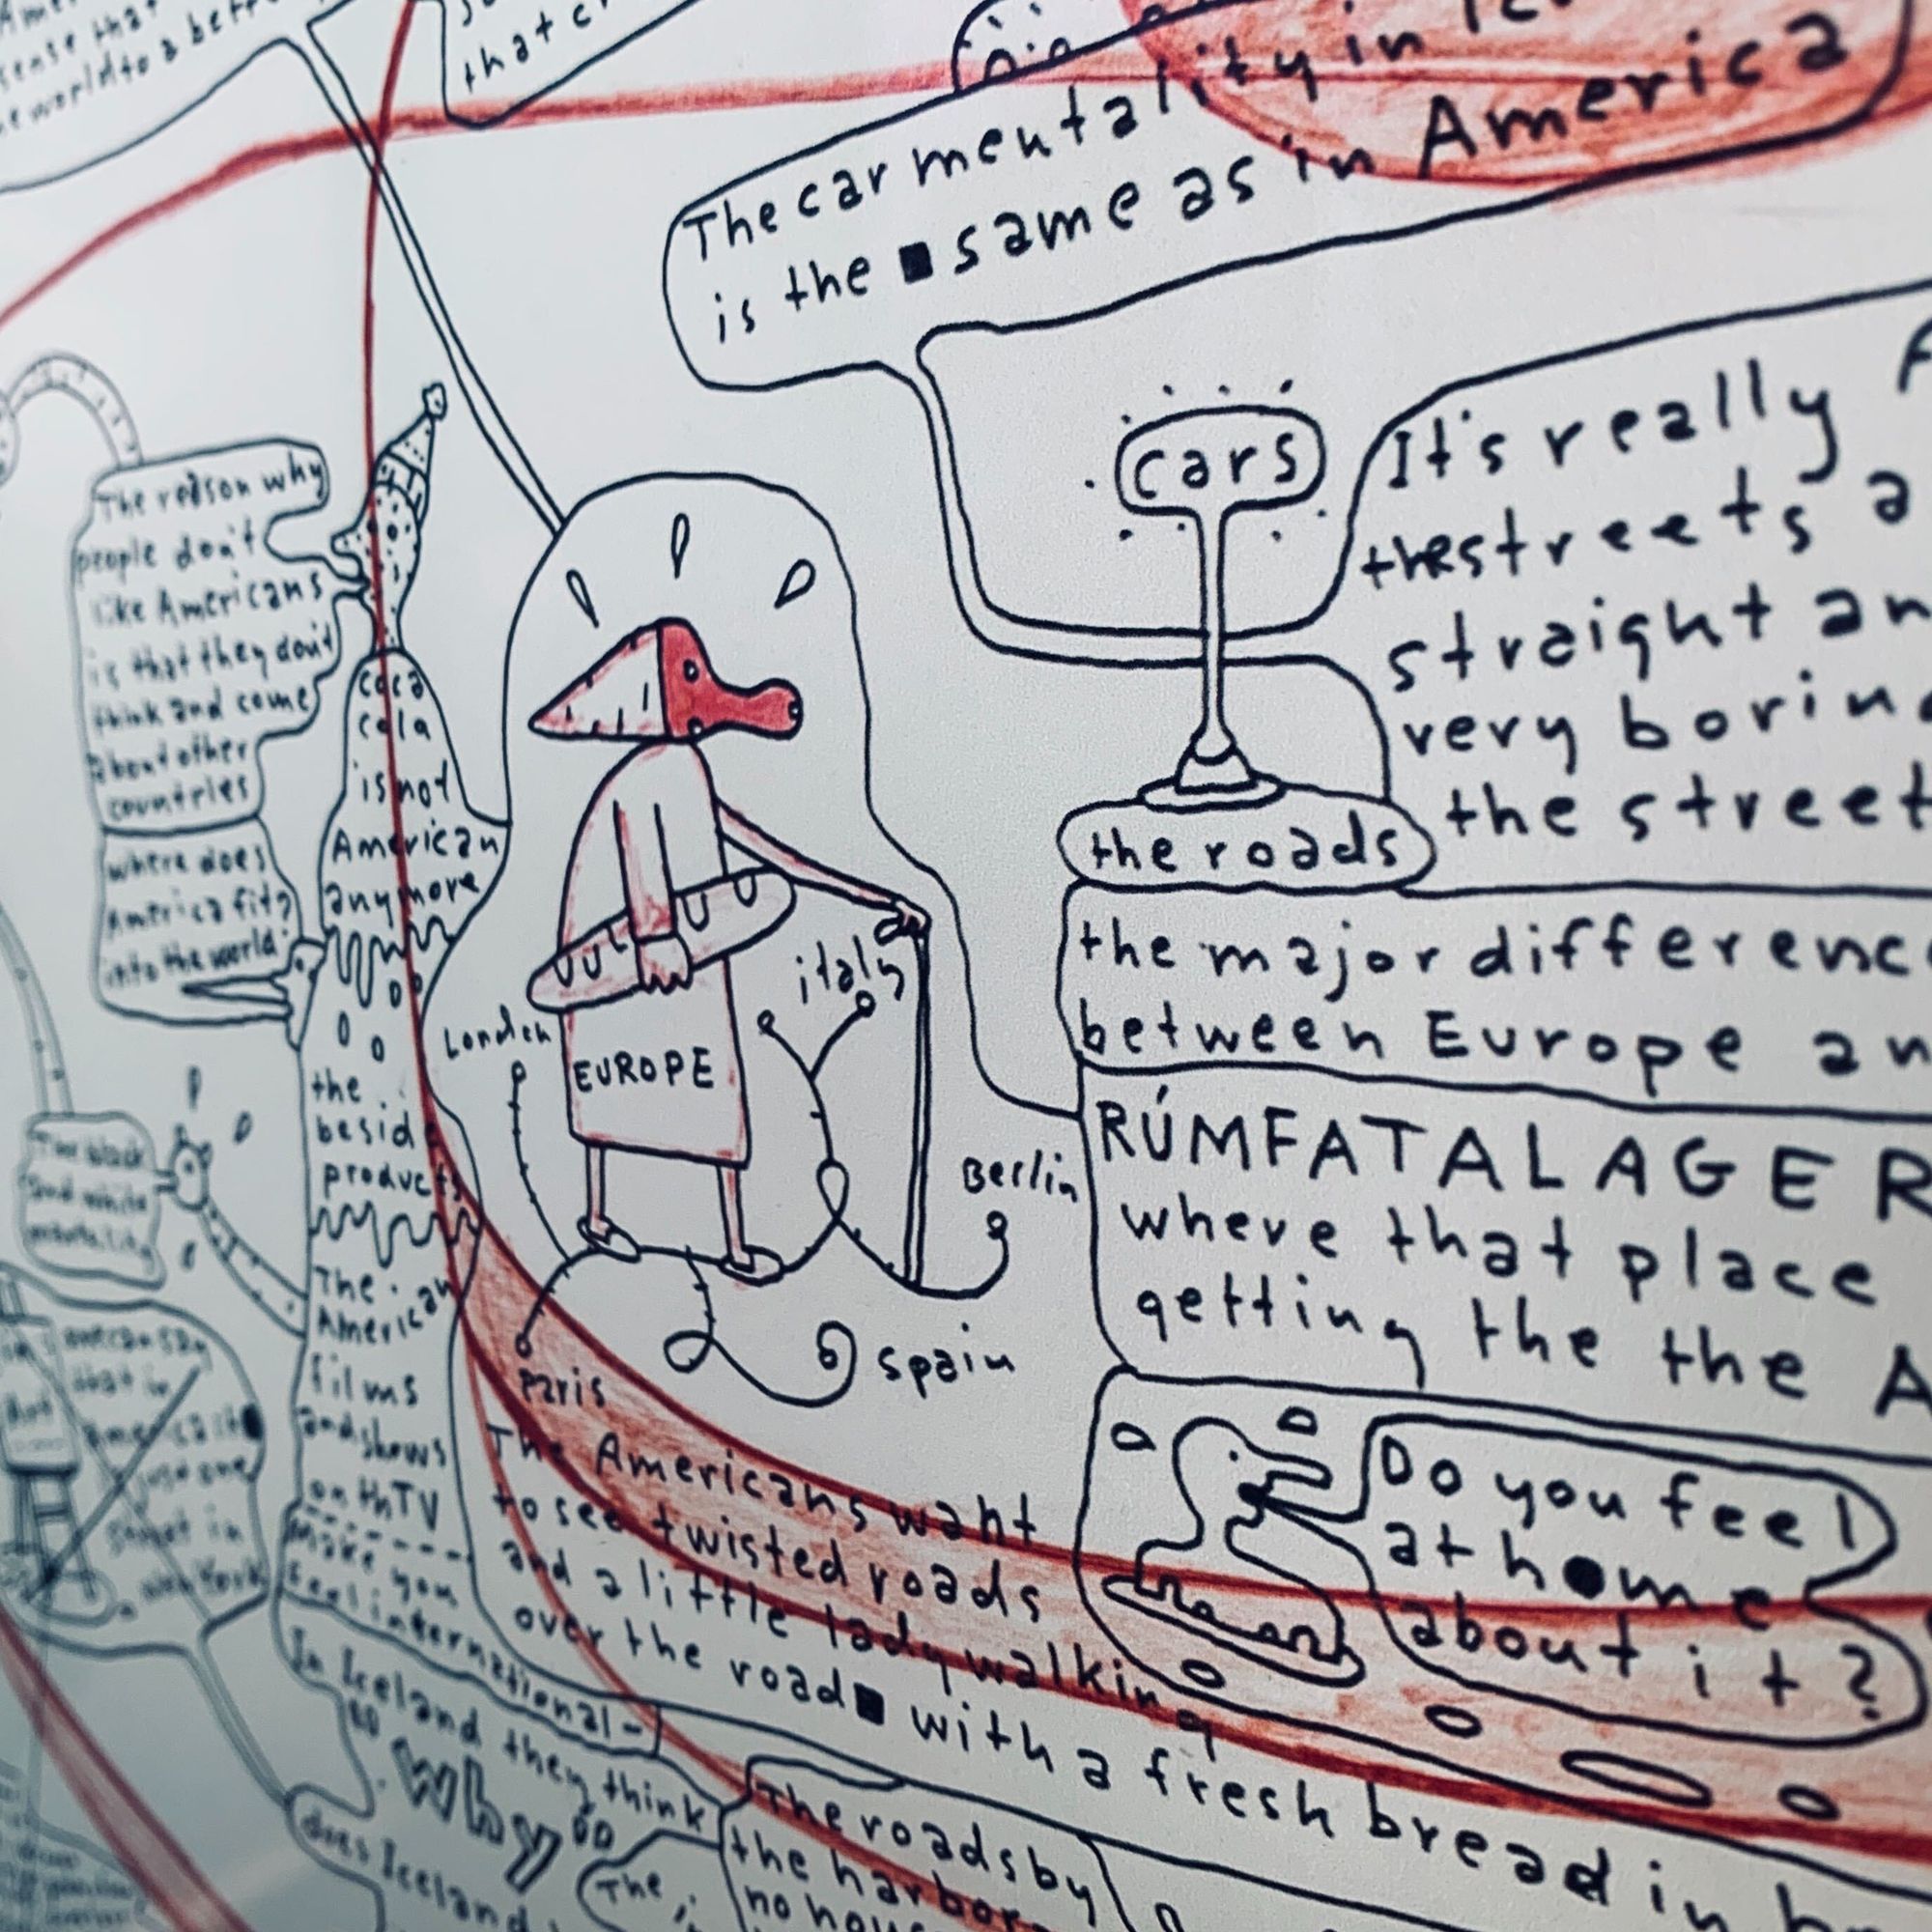 sense that
world to a better
that
The car mentality in
is the same as in America
cars
the roads
It's really
the streets a
straight an
very boring
the street
the major differenc
between Europe an
RÚMFATALAGER
where that place
getting the the A
Do you feel
at home
about it?
The reason why
people don't
like Americans
is that they don't
think and come
about other
countries
where does
America fit?
into the world
coca
cola
is not
American
anymore
the
besid
products
The
American
films
and shows
on thTV
make you
feel international
London
italy
EUROPE
Berlin
Spain
Paris
The Americans want
to see twisted roads
and a little lady walking
over the road with a fresh bread in
The black
and white
mentality
one can say
that in
America it
just one
street in
New York
In Iceland they think
so
why
does Iceland
The roads by
the harbor
no hou
The